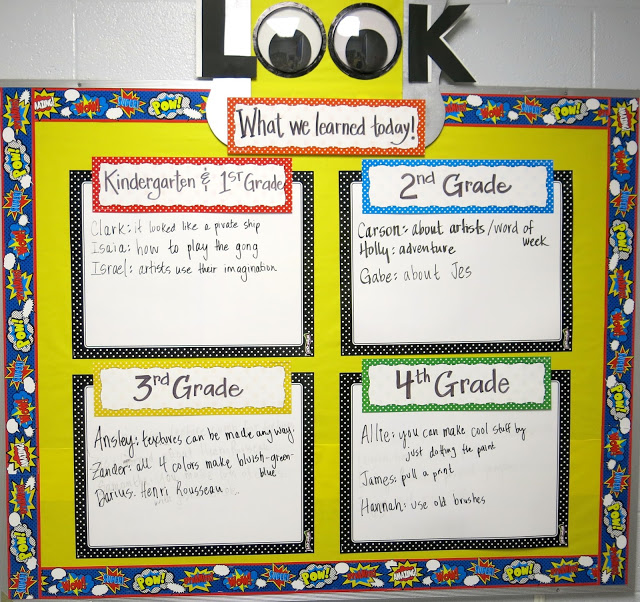 LOOK
What we learned today!
Kindergarten & 1st Grade
Clark: it looked like a pirate ship
Isaia: how to play the gong
Israel: artists use their imagination
2nd Grade
Carson: about artists/word of
week
Holly: adventure
Gabe: about Jes
3rd Grade
Ansley: textures can be made any way.
Zander: all 4 colors make bluish-green-
blue
Darius: Henri Rousseau
4th Grade
Allie: you can make cool stuff by
just dotting the paint
James: pull a print
Hannah: use old brushes
POW!
WOW!
AMAZING!